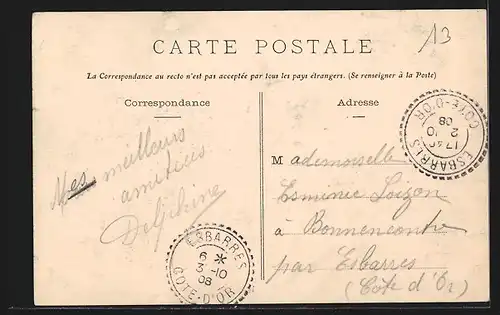 13
CARTE POSTALE
La Correspondance au recto n'est pas acceptée par tous les pays étrangers. (Se renseigner à la Poste)
Correspondance
Adresse
Mes meilleurs
amitiés
Delphine
Mademoiselle
Loizon
à Bonnencontre
par Esbarres
(Côte d'Or)
ESBARRES
17 40
2 -10
08
COTE-D'OR
ESBARRES
6 *
3 -10
08
COTE-D'OR